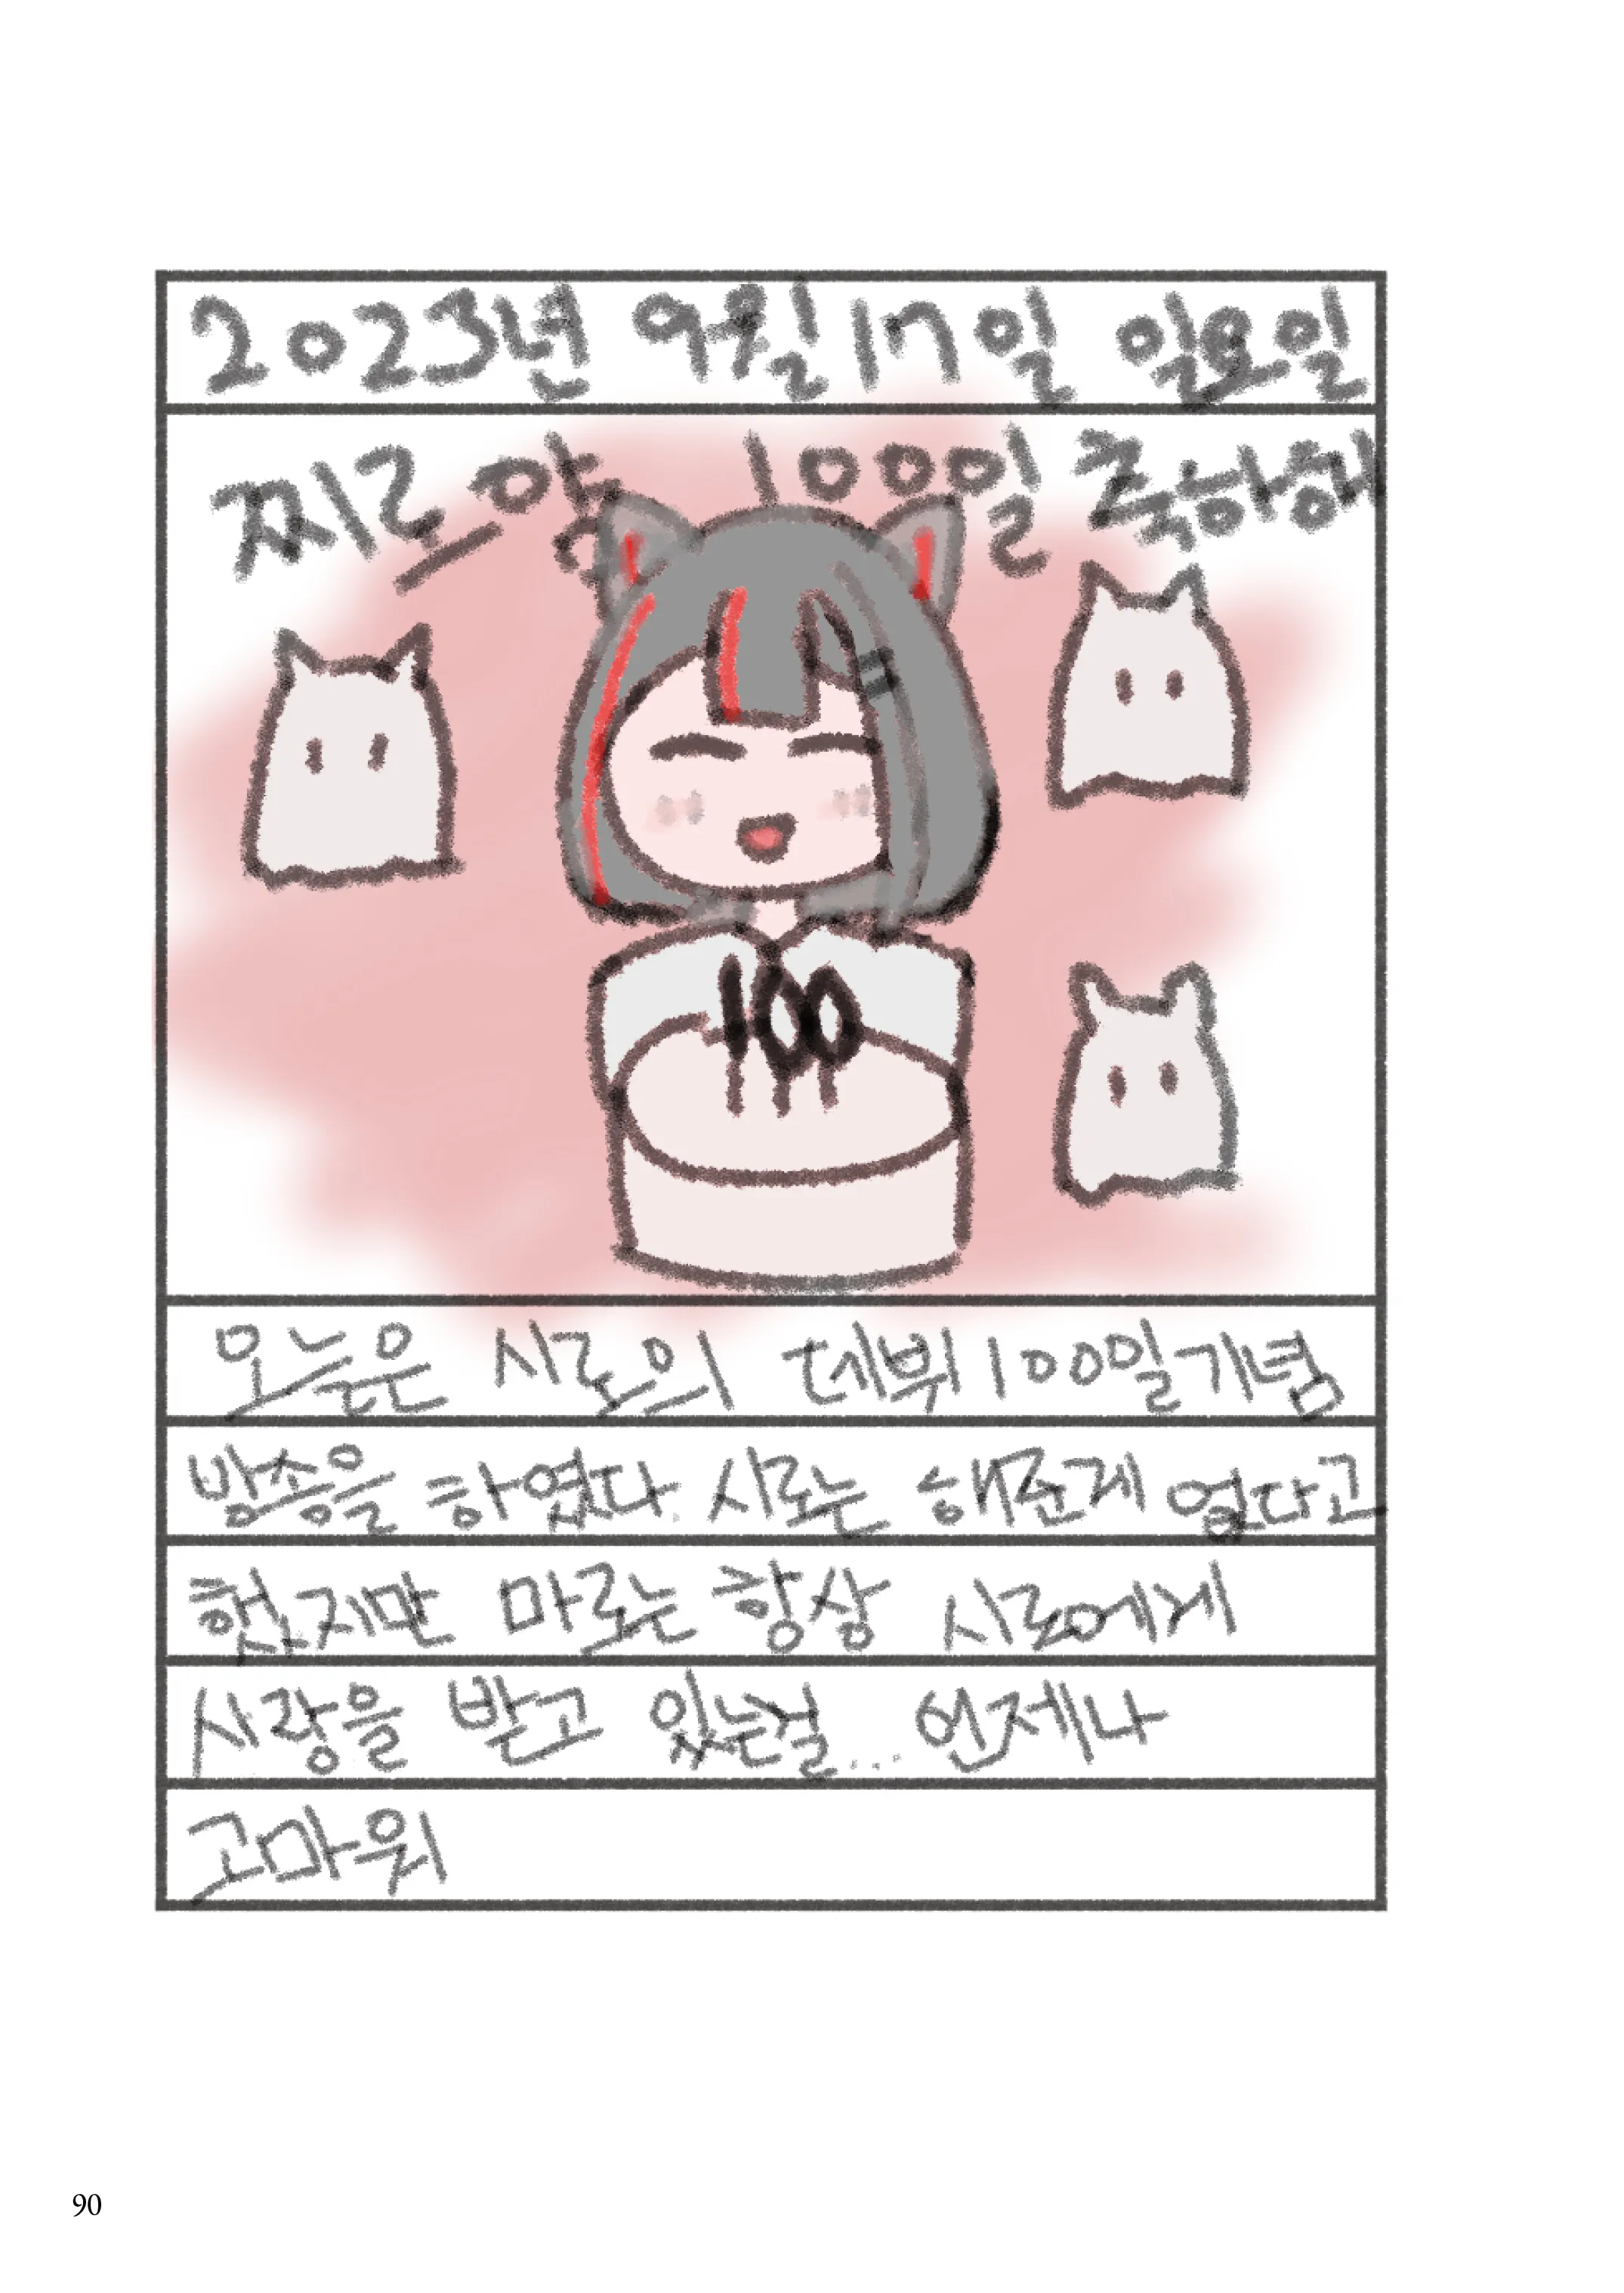 2023년 9월 17일 일요일
찌로얌 100일 축하해
100
오늘은 시로의 데뷔 100일 기념
방송을 하였다. 시로는 해준게 없다고
했지만 마로는 항상 시로에게
사랑을 받고 있는걸... 언제나
고마워
90